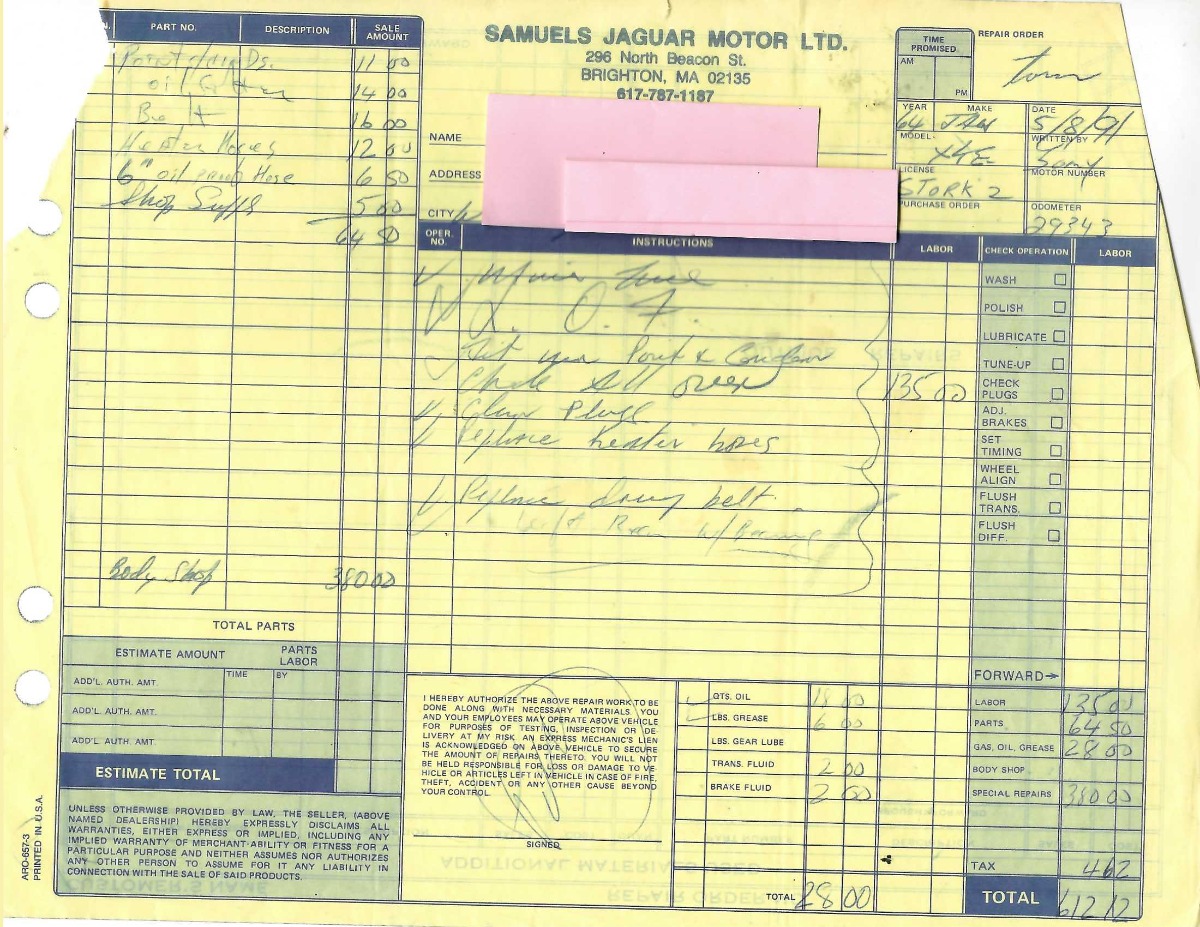 SAMUELS JAGUAR MOTOR LTD.
296 North Beacon St.
BRIGHTON, MA 02135
617-787-1187
PART NO. DESCRIPTION SALE AMOUNT
11 00
oil 14 00
Belt 16 00
Heater Hoses 12 00
6" oil Hose 6 50
Shop Suppls 5 00
64 50
Body Shop 380 00
TOTAL PARTS
NAME
ADDRESS
CITY
TIME PROMISED
AM
PM
REPAIR ORDER
Tom
YEAR MAKE DATE
64 JAG 5/8/91
MODEL WRITTEN BY
XKE
LICENSE MOTOR NUMBER
STORK 2
PURCHASE ORDER ODOMETER
29343
OPER. NO. INSTRUCTIONS LABOR CHECK OPERATION LABOR
L. O. F.
Point &
Check All over
135 00
Clean Plugs
Replace heater hoses
Replace belt
w/
WASH
POLISH
LUBRICATE
TUNE-UP
CHECK PLUGS
ADJ. BRAKES
SET TIMING
WHEEL ALIGN
FLUSH TRANS.
FLUSH DIFF.
FORWARD→
ESTIMATE AMOUNT PARTS LABOR
ADD'L. AUTH. AMT. TIME BY
ADD'L. AUTH. AMT.
ADD'L. AUTH. AMT.
ESTIMATE TOTAL
UNLESS OTHERWISE PROVIDED BY LAW, THE SELLER, (ABOVE
NAMED DEALERSHIP) HEREBY EXPRESSLY DISCLAIMS ALL
WARRANTIES, EITHER EXPRESS OR IMPLIED, INCLUDING ANY
IMPLIED WARRANTY OF MERCHANT-ABILITY OR FITNESS FOR A
PARTICULAR PURPOSE AND NEITHER ASSUMES NOR AUTHORIZES
ANY OTHER PERSON TO ASSUME FOR IT ANY LIABILITY IN
CONNECTION WITH THE SALE OF SAID PRODUCTS.
ARO-657-3
PRINTED IN U.S.A.
I HEREBY AUTHORIZE THE ABOVE REPAIR WORK TO BE
DONE ALONG WITH NECESSARY MATERIALS. YOU
AND YOUR EMPLOYEES MAY OPERATE ABOVE VEHICLE
FOR PURPOSES OF TESTING, INSPECTION OR DE-
LIVERY AT MY RISK. AN EXPRESS MECHANIC'S LIEN
IS ACKNOWLEDGED ON ABOVE VEHICLE TO SECURE
THE AMOUNT OF REPAIRS THERETO. YOU WILL NOT
BE HELD RESPONSIBLE FOR LOSS OR DAMAGE TO VE-
HICLE OR ARTICLES LEFT IN VEHICLE IN CASE OF FIRE,
THEFT, ACCIDENT OR ANY OTHER CAUSE BEYOND
YOUR CONTROL.
SIGNED
QTS. OIL 18 00
LBS. GREASE 6 00
LBS. GEAR LUBE
TRANS. FLUID 2 00
BRAKE FLUID 2 00
TOTAL 28 00
LABOR 135 00
PARTS 64 50
GAS, OIL, GREASE 28 00
BODY SHOP
SPECIAL REPAIRS 380 00
TAX 4 62
TOTAL 612 12